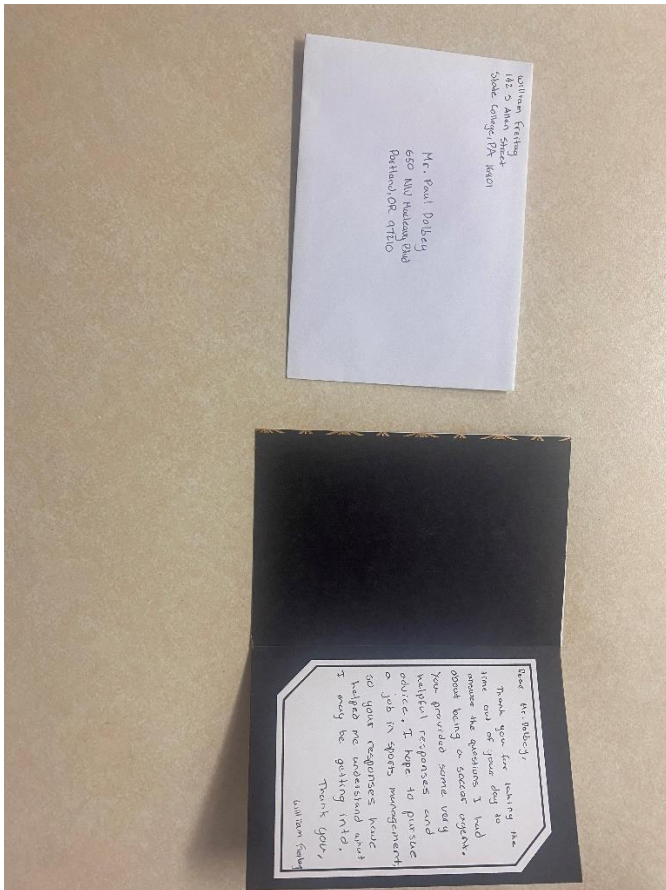 William Freitag
142 S Allen Street
State College, PA 16801
Mr. Paul Dolbey
650 NW Macleay Blvd
Portland, OR 97210
Dear Mr. Dolbey,
Thank you for taking the
time out of your day to
answer the questions I had
about being a soccer agent.
You provided some very
helpful responses and
advice. I hope to pursue
a job in sports management,
so your responses have
helped me understand what
I may be getting into.
Thank you,
William Freitag